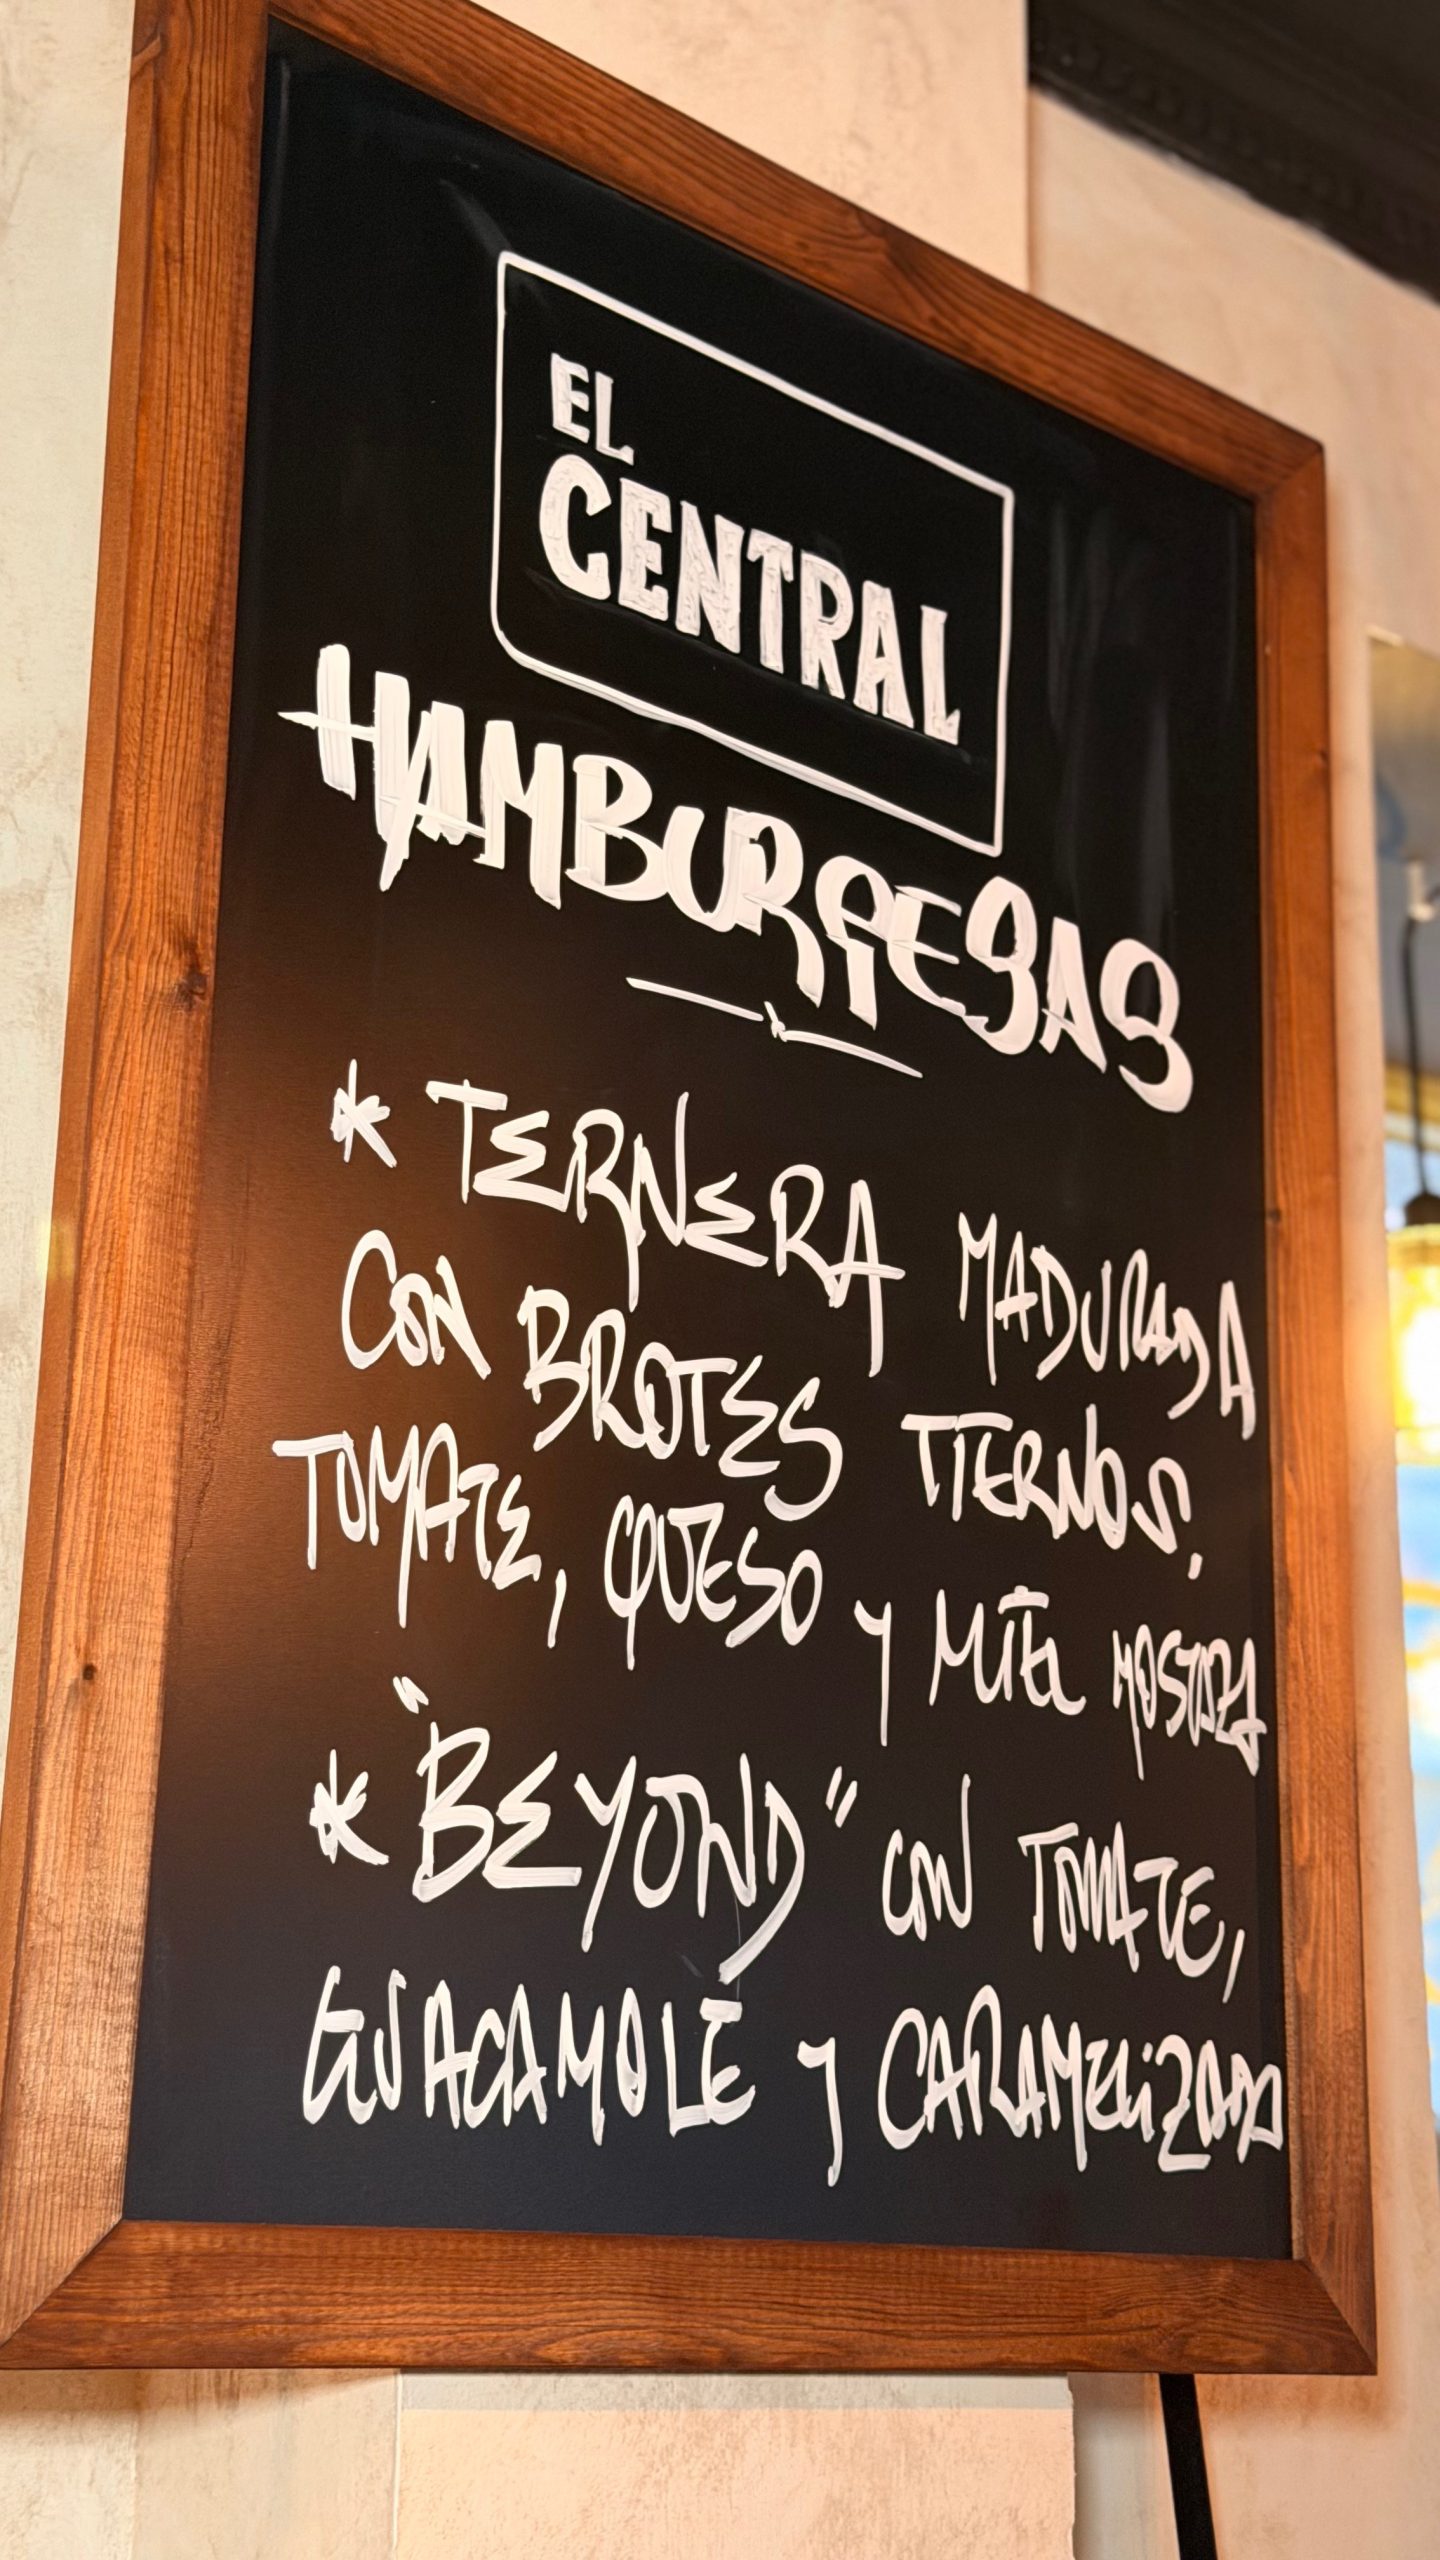 EL
CENTRAL
HAMBURGESAS
* TERNERA MADURADA
CON BROTES TIERNOS,
TOMATE, QUESO Y MIEL MOSTAZA
* "BEYOND" CON TOMATE,
GUACAMOLE Y CARAMELIZADA